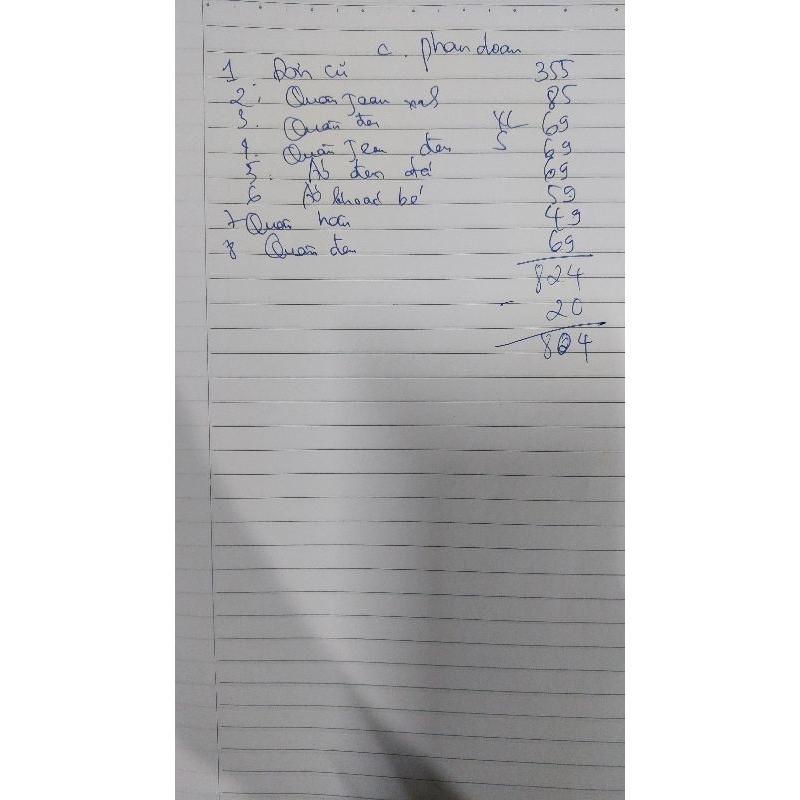 c. phan doan
1 Đơn cũ 355
2. Quần Jean 85
3. Quần đen XL 69
4. Quần Jean đen S 69
5. Áo đen 69
6 Áo khoác bé 59
7 Quần 49
8 Quần đen 69
824
- 20
804